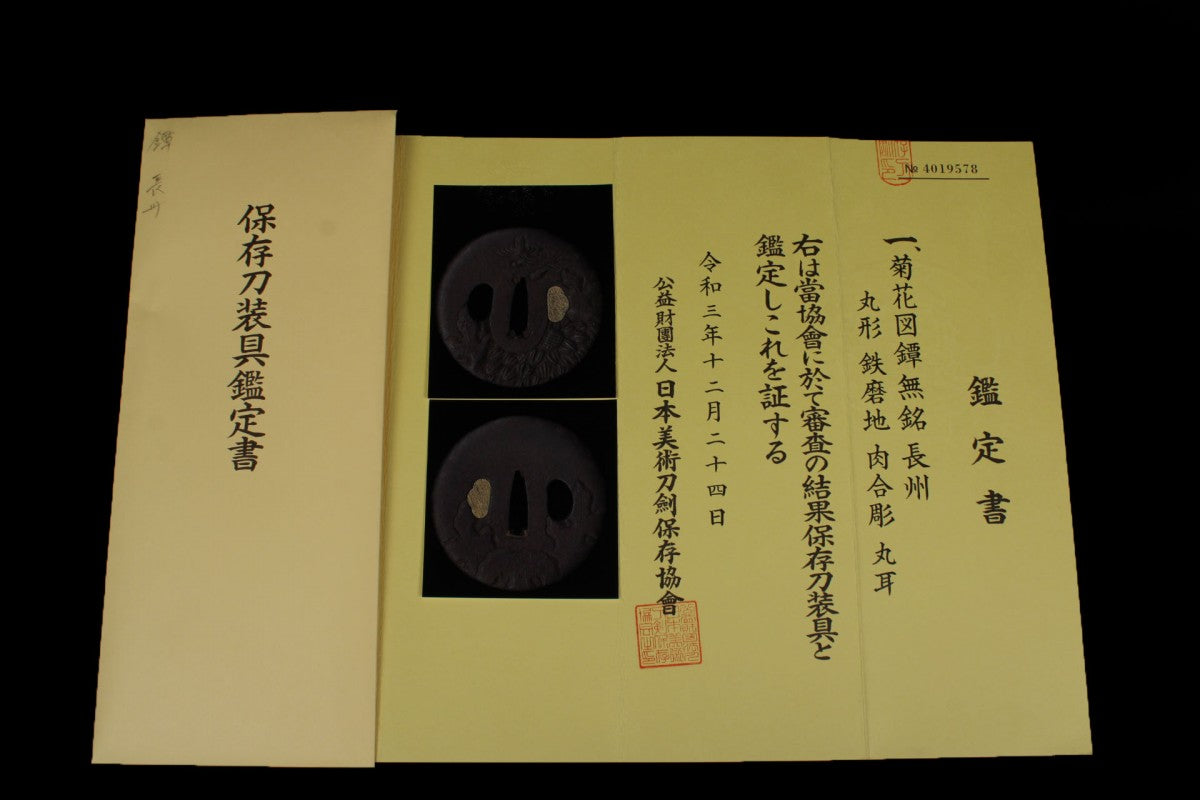 鐔 長州
保存刀装具鑑定書
№ 4019578
鑑定書
一、菊花図鐔 無銘 長州
丸形 鉄磨地 肉合彫 丸耳
右は當協會に於て審査の結果保存刀装具と
鑑定しこれを証する
令和三年十二月二十四日
公益財團法人 日本美術刀劍保存協會